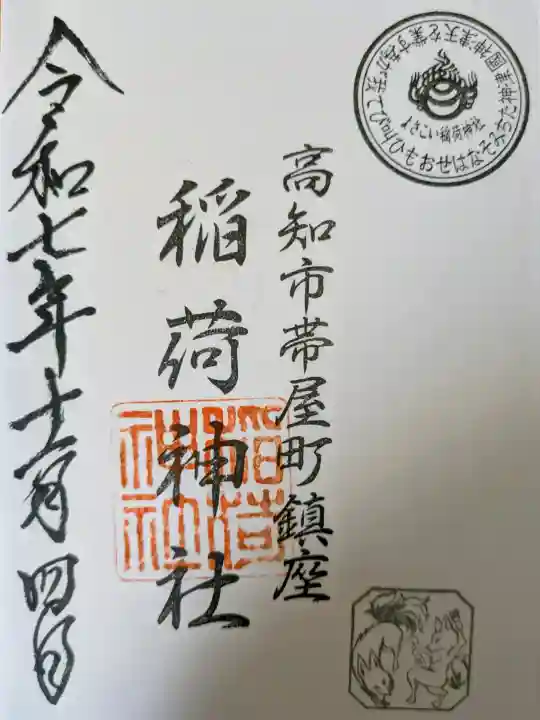 高知市帯屋町鎮座
稲荷神社
令和七年十一月四日
稲荷
神社
よさこい稲荷神社